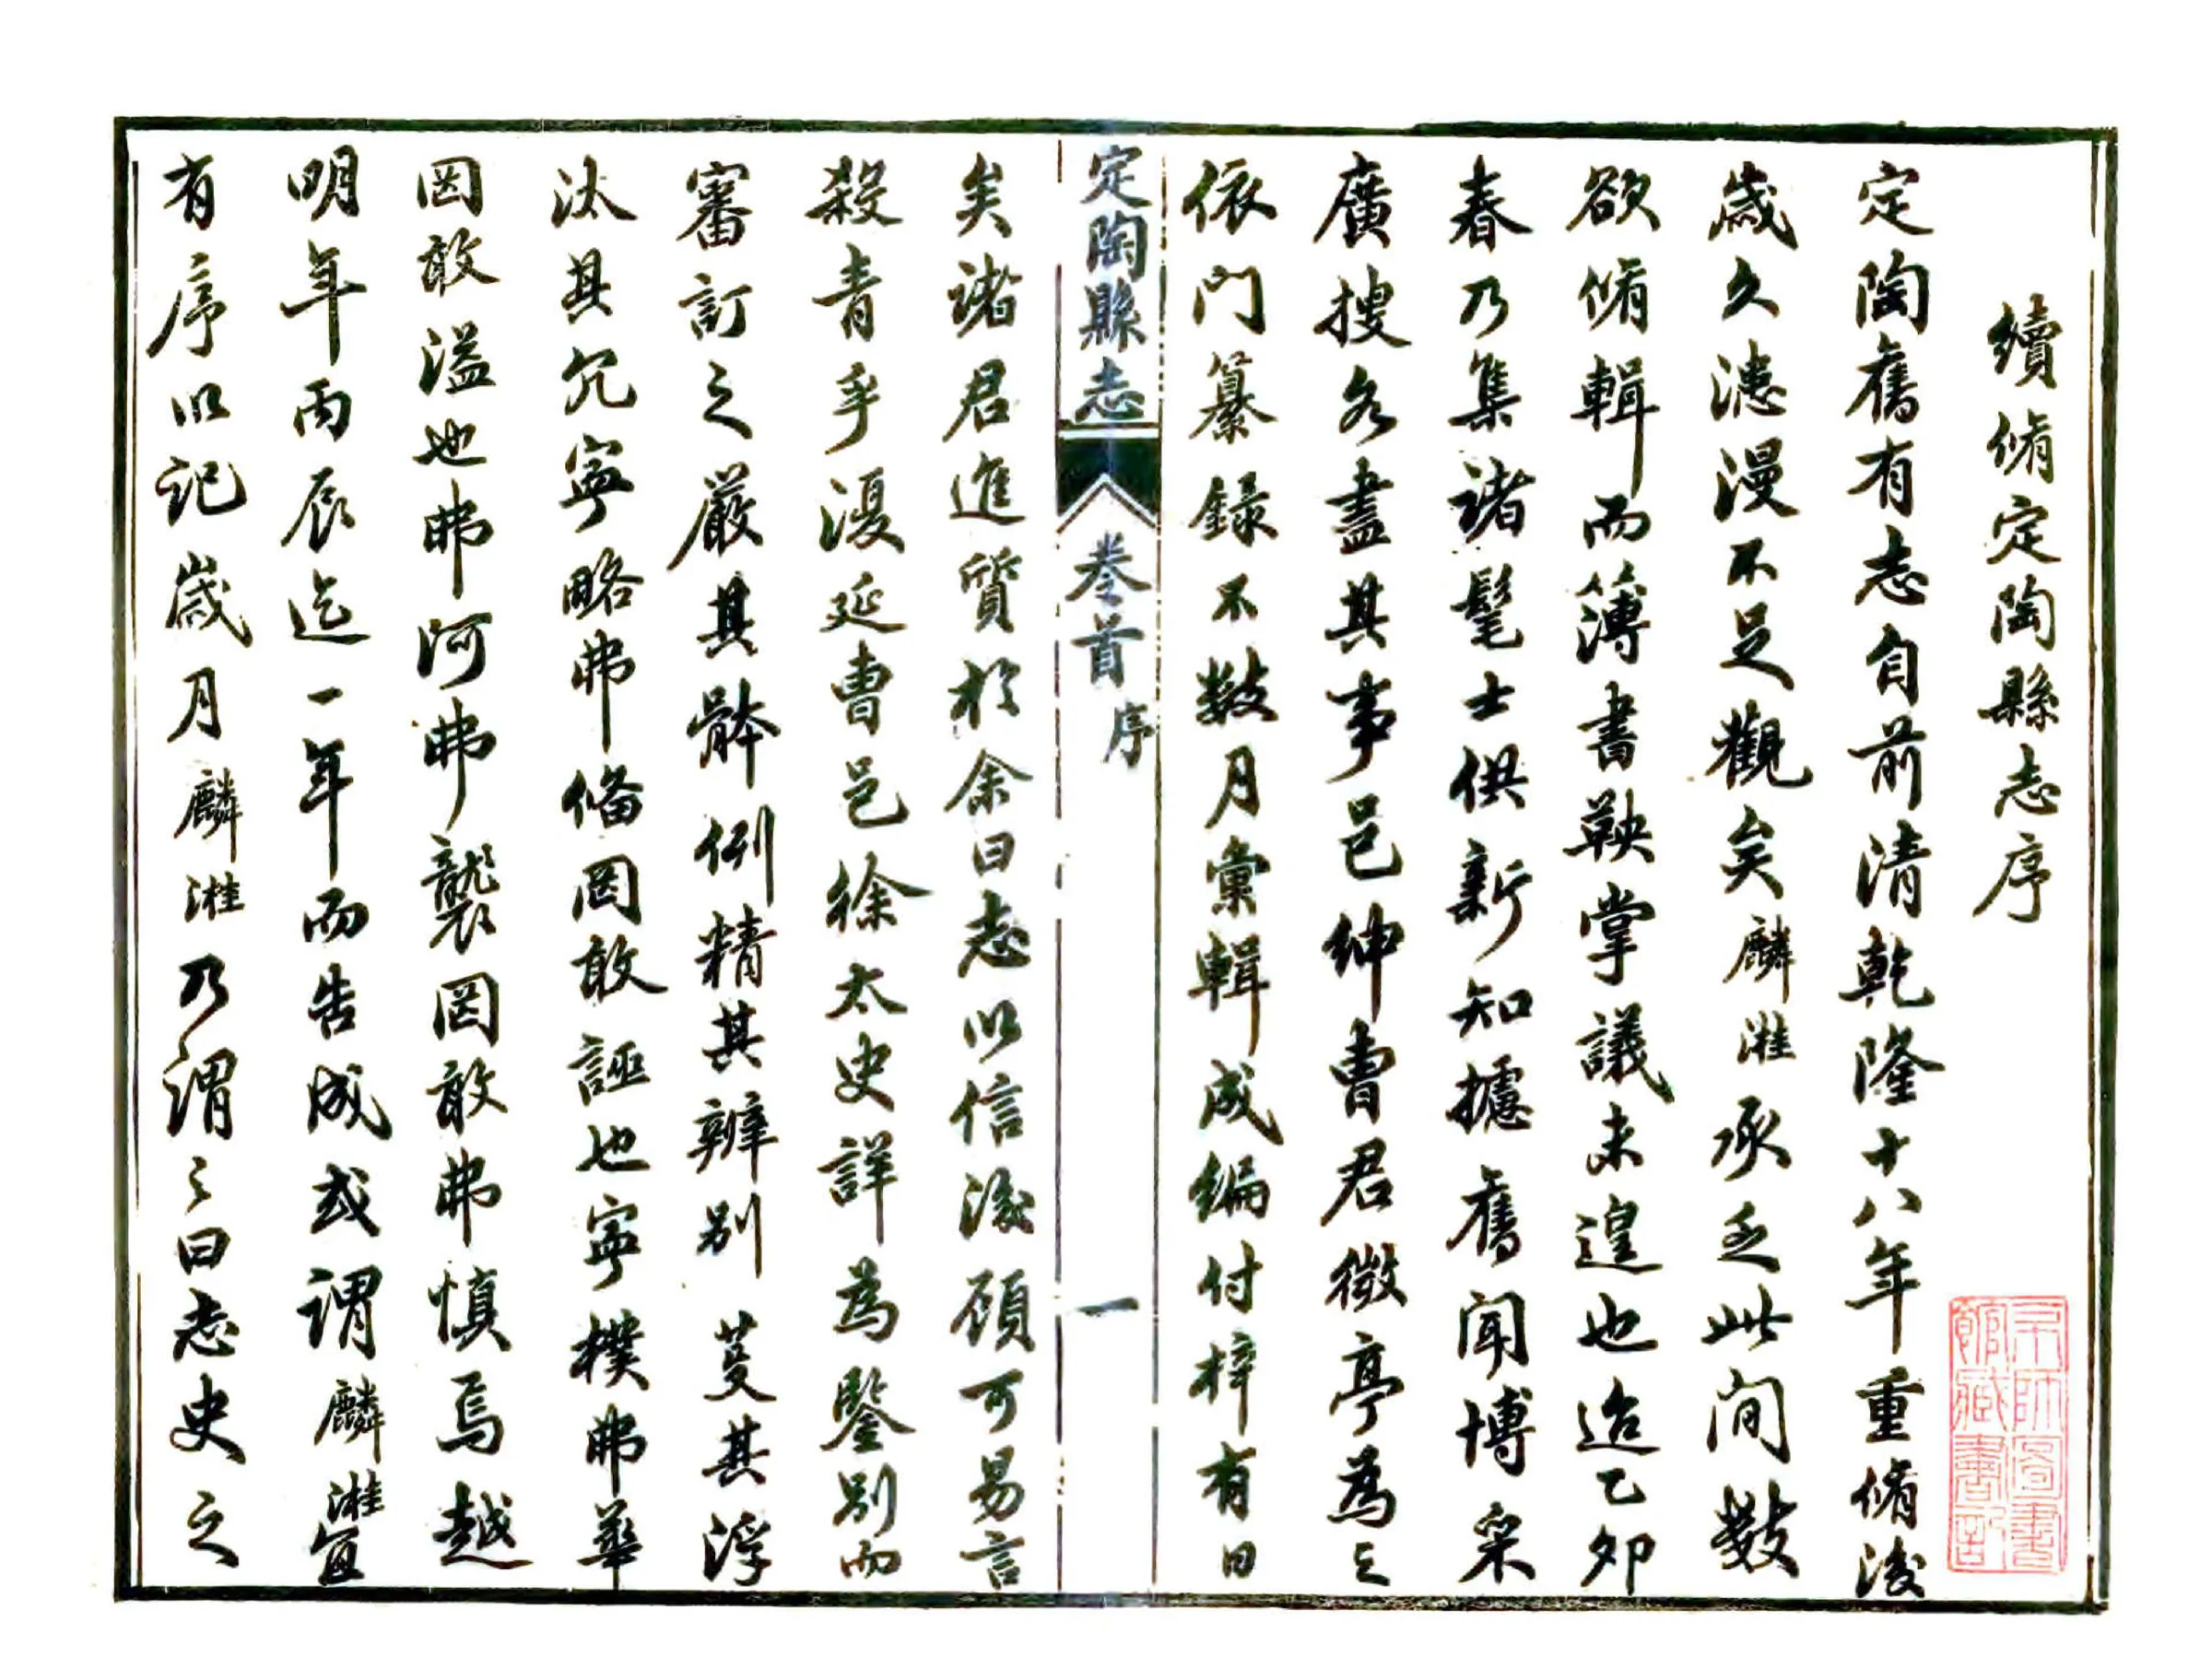 續脩定陶縣志序
定陶舊有志自前清乾隆十八年重脩後
歲久漶漫不足觀矣麟溎承乏此間數
欲脩輯而簿書鞅掌議未遑也迨乙卯
春乃集諸髦士供新知攄舊聞博采
廣搜各盡其事邑紳曹君微亭為之
依門纂錄不數月彙輯成编付梓有日
定陶縣志
卷首
序
一
矣諸君進質於余曰志以信後顧可易言
殺青乎復延曹邑徐太史詳為鑒別而
審訂之嚴其骵例精其辨別芟其浮
汰其冗寧略弗俻罔敢誣也寧樸弗華
罔敢溢也弗阿弗襲罔敢弗慎焉越
明年丙辰迄一年而告成或謂麟溎宜
有序以記歲月麟溎乃謂之曰志史之